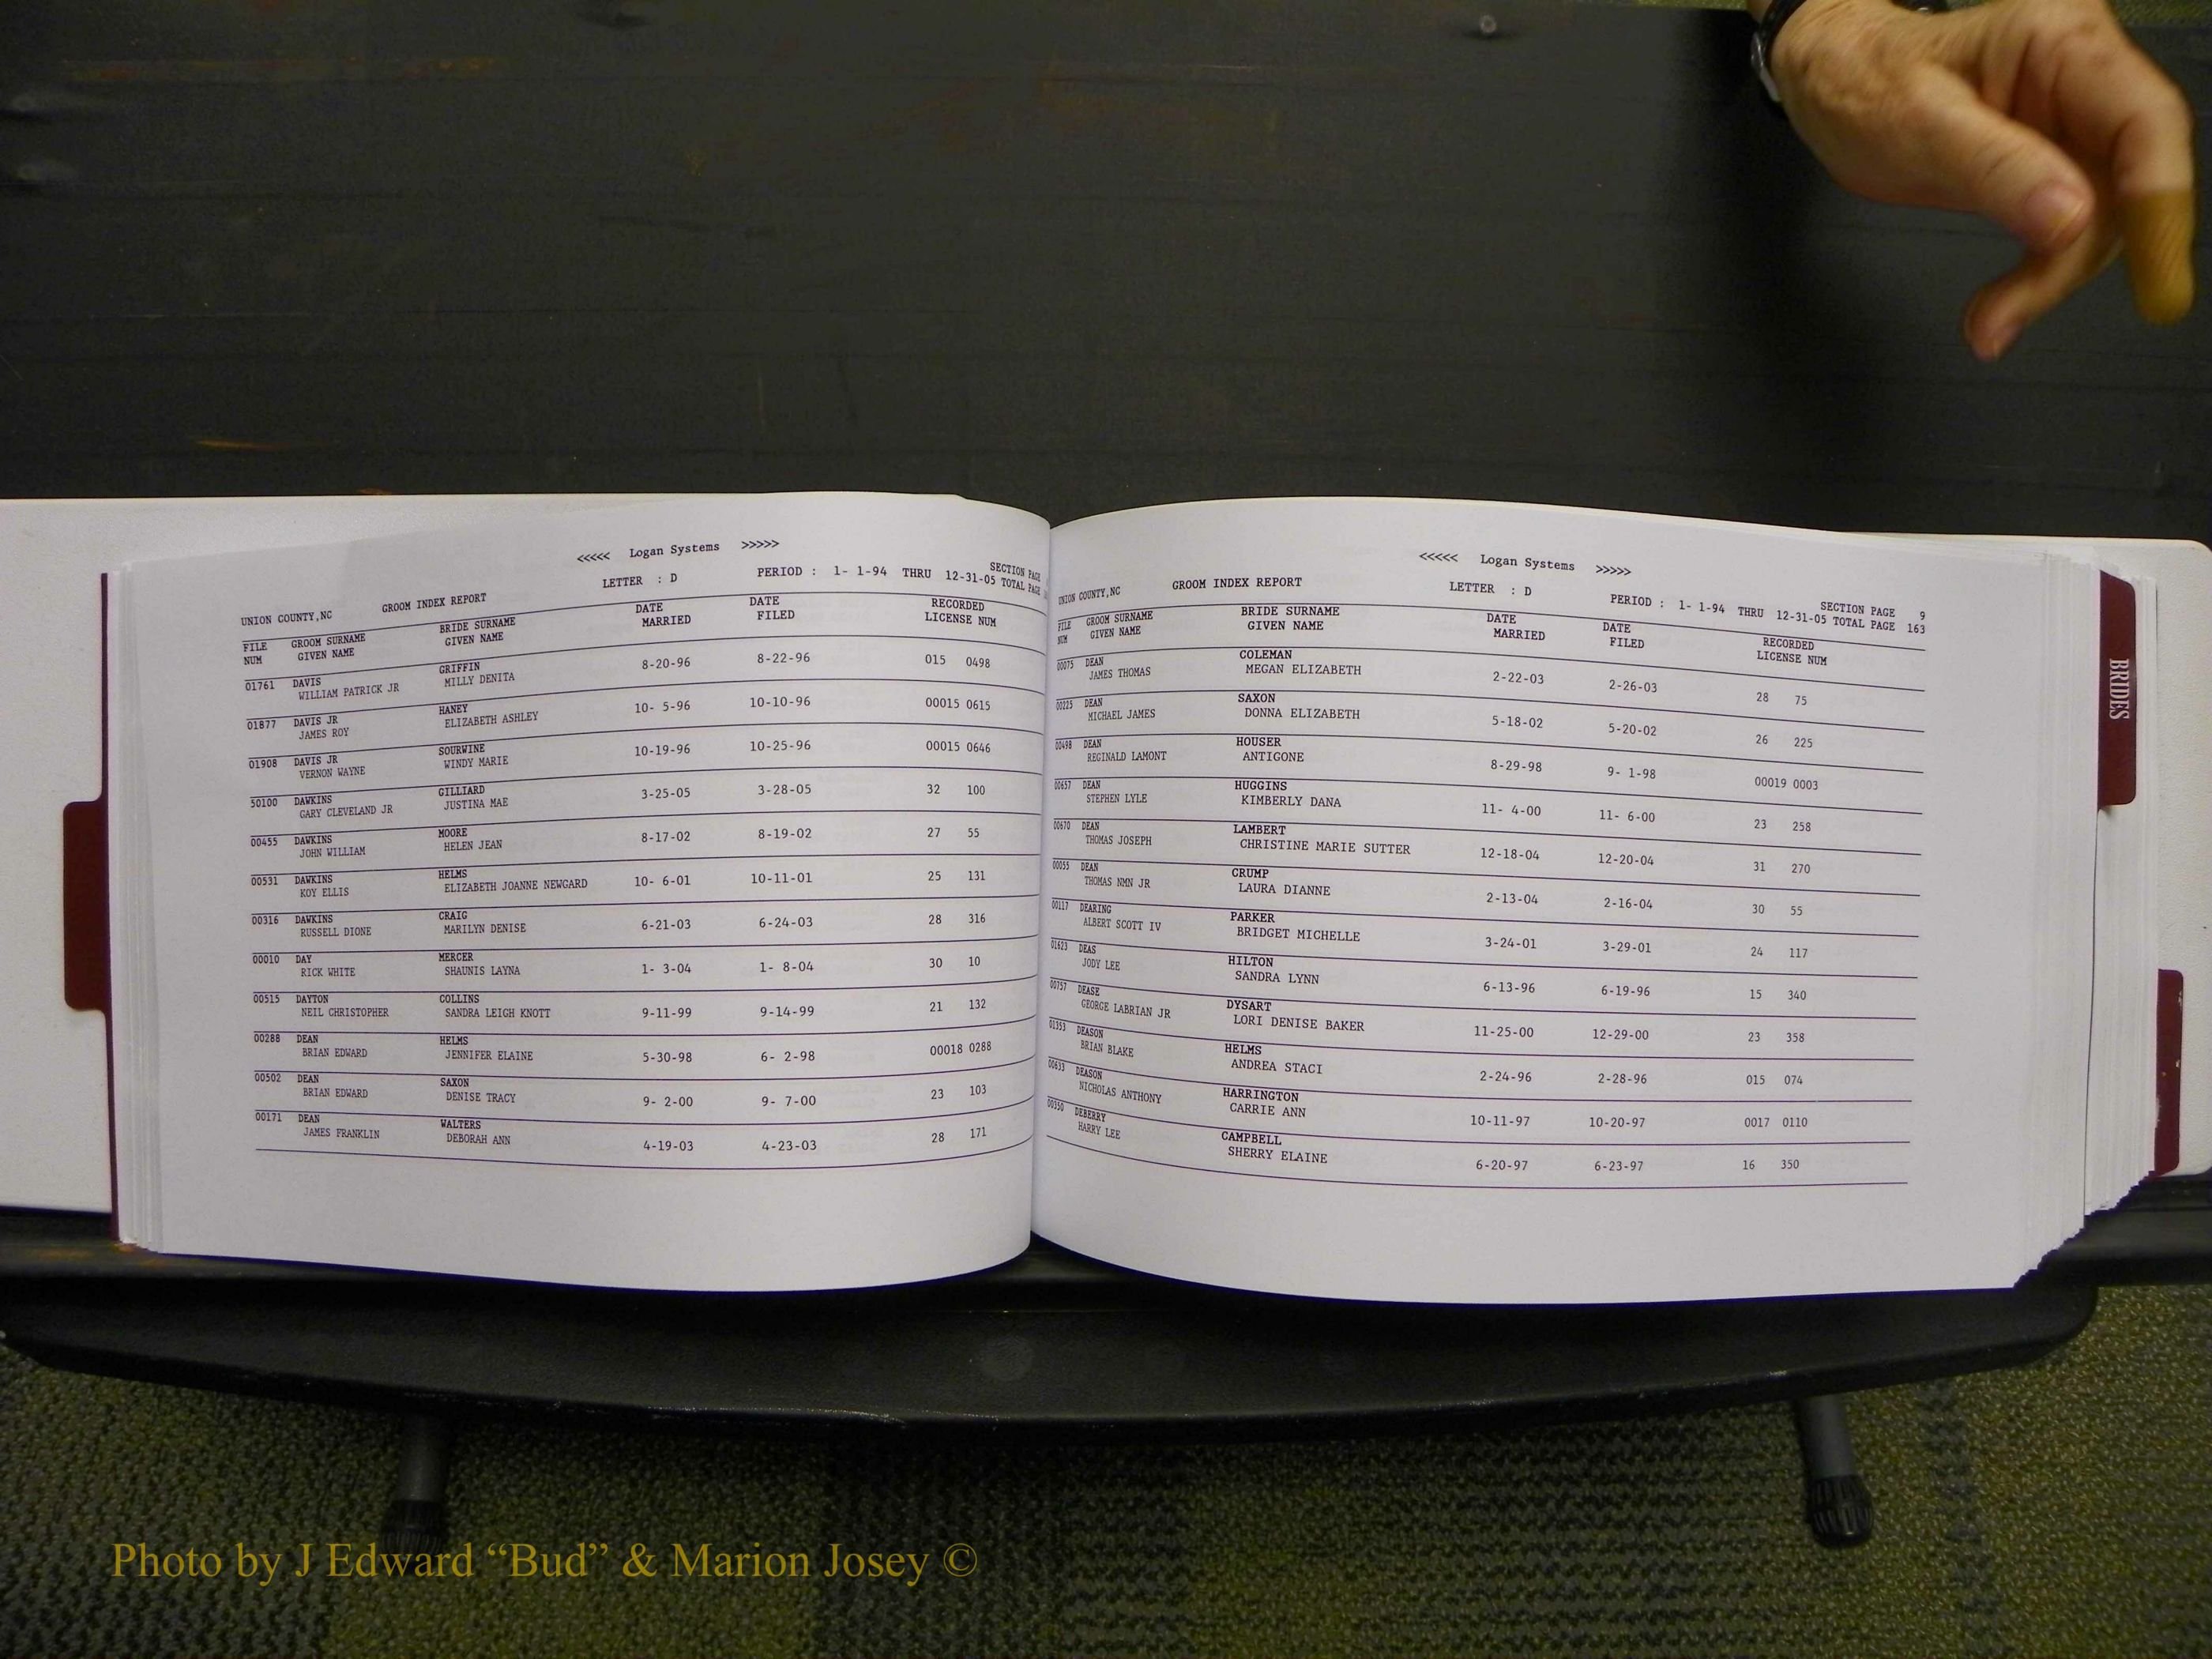 <<<<< Logan Systems >>>>>
UNION COUNTY,NC GROOM INDEX REPORT LETTER : D PERIOD : 1- 1-94 THRU 12-31-05 SECTION PAGE
TOTAL PAGE
FILE GROOM SURNAME BRIDE SURNAME DATE DATE RECORDED
NUM GIVEN NAME GIVEN NAME MARRIED FILED LICENSE NUM
01761 DAVIS GRIFFIN 8-20-96 8-22-96 015 0498
WILLIAM PATRICK JR MILLY DENITA
01877 DAVIS JR HANEY 10- 5-96 10-10-96 00015 0615
JAMES ROY ELIZABETH ASHLEY
01908 DAVIS JR SOURWINE 10-19-96 10-25-96 00015 0646
VERNON WAYNE WINDY MARIE
50100 DAWKINS GILLIARD 3-25-05 3-28-05 32 100
GARY CLEVELAND JR JUSTINA MAE
00455 DAWKINS MOORE 8-17-02 8-19-02 27 55
JOHN WILLIAM HELEN JEAN
00531 DAWKINS HELMS 10- 6-01 10-11-01 25 131
KOY ELLIS ELIZABETH JOANNE NEWGARD
00316 DAWKINS CRAIG 6-21-03 6-24-03 28 316
RUSSELL DIONE MARILYN DENISE
00010 DAY MERCER 1- 3-04 1- 8-04 30 10
RICK WHITE SHAUNIS LAYNA
00515 DAYTON COLLINS 9-11-99 9-14-99 21 132
NEIL CHRISTOPHER SANDRA LEIGH KNOTT
00288 DEAN HELMS 5-30-98 6- 2-98 00018 0288
BRIAN EDWARD JENNIFER ELAINE
00502 DEAN SAXON 9- 2-00 9- 7-00 23 103
BRIAN EDWARD DENISE TRACY
00171 DEAN WALTERS 4-19-03 4-23-03 28 171
JAMES FRANKLIN DEBORAH ANN
<<<<< Logan Systems >>>>>
UNION COUNTY,NC GROOM INDEX REPORT LETTER : D PERIOD : 1- 1-94 THRU 12-31-05 SECTION PAGE 9
TOTAL PAGE 163
FILE GROOM SURNAME BRIDE SURNAME DATE DATE RECORDED
NUM GIVEN NAME GIVEN NAME MARRIED FILED LICENSE NUM
00075 DEAN COLEMAN 2-22-03 2-26-03 28 75
JAMES THOMAS MEGAN ELIZABETH
00225 DEAN SAXON 5-18-02 5-20-02 26 225
MICHAEL JAMES DONNA ELIZABETH
00498 DEAN HOUSER 8-29-98 9- 1-98 00019 0003
REGINALD LAMONT ANTIGONE
00657 DEAN HUGGINS 11- 4-00 11- 6-00 23 258
STEPHEN LYLE KIMBERLY DANA
00670 DEAN LAMBERT 12-18-04 12-20-04 31 270
THOMAS JOSEPH CHRISTINE MARIE SUTTER
00055 DEAN CRUMP 2-13-04 2-16-04 30 55
THOMAS NMN JR LAURA DIANNE
00117 DEARING PARKER 3-24-01 3-29-01 24 117
ALBERT SCOTT IV BRIDGET MICHELLE
01623 DEAS HILTON 6-13-96 6-19-96 15 340
JODY LEE SANDRA LYNN
00757 DEASE DYSART 11-25-00 12-29-00 23 358
GEORGE LABRIAN JR LORI DENISE BAKER
01353 DEASON HELMS 2-24-96 2-28-96 015 074
BRIAN BLAKE ANDREA STACI
00633 DEASON HARRINGTON 10-11-97 10-20-97 0017 0110
NICHOLAS ANTHONY CARRIE ANN
00350 DEBERRY CAMPBELL 6-20-97 6-23-97 16 350
HARRY LEE SHERRY ELAINE
BRIDES
Photo by J Edward “Bud” & Marion Josey ©